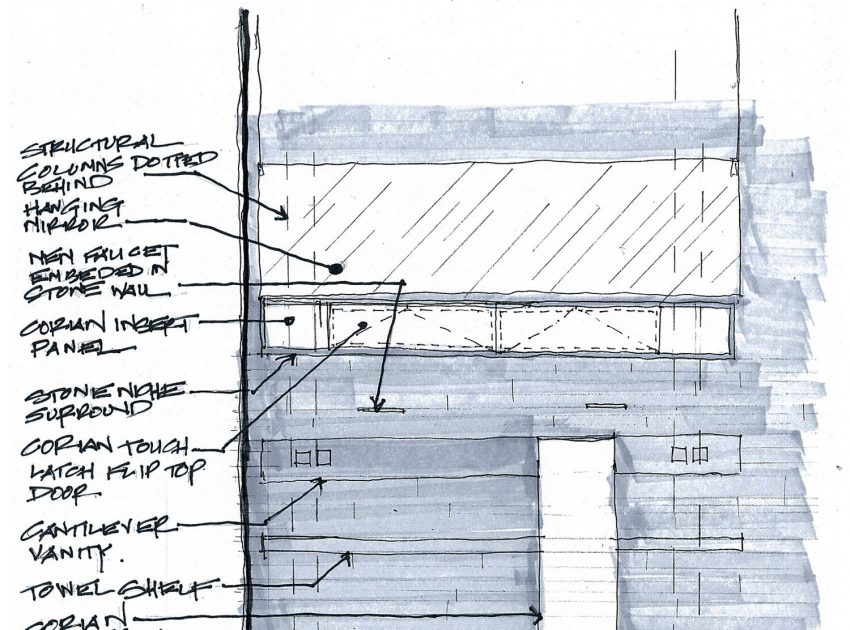 STRUCTURAL
COLUMNS DOTTED
BEHIND
HANGING
MIRROR
NEW FAUCET
EMBEDED IN
STONE WALL
CORIAN INSERT
PANEL
STONE NICHE
SURROUND
CORIAN TOUCH
LATCH FLIP TOP
DOOR
CANTILEVER
VANITY.
TOWEL SHELF
CORIAN